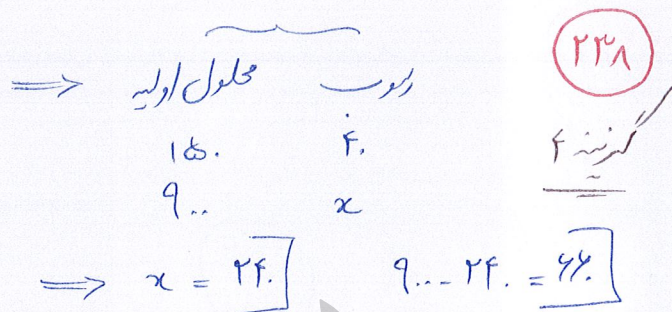 ۲۳۸
گزینه ۴
⇒ محلول اولیه رسوب
۱۵۰ ۴۰
۹۰۰ x
⇒ x = ۲۴۰ ۹۰۰ - ۲۴۰ = ۶۶۰